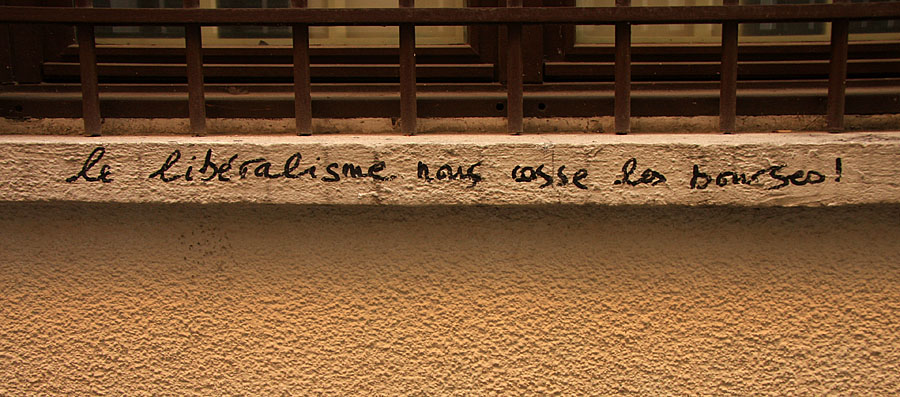 le libéralisme nous casse les bourses!